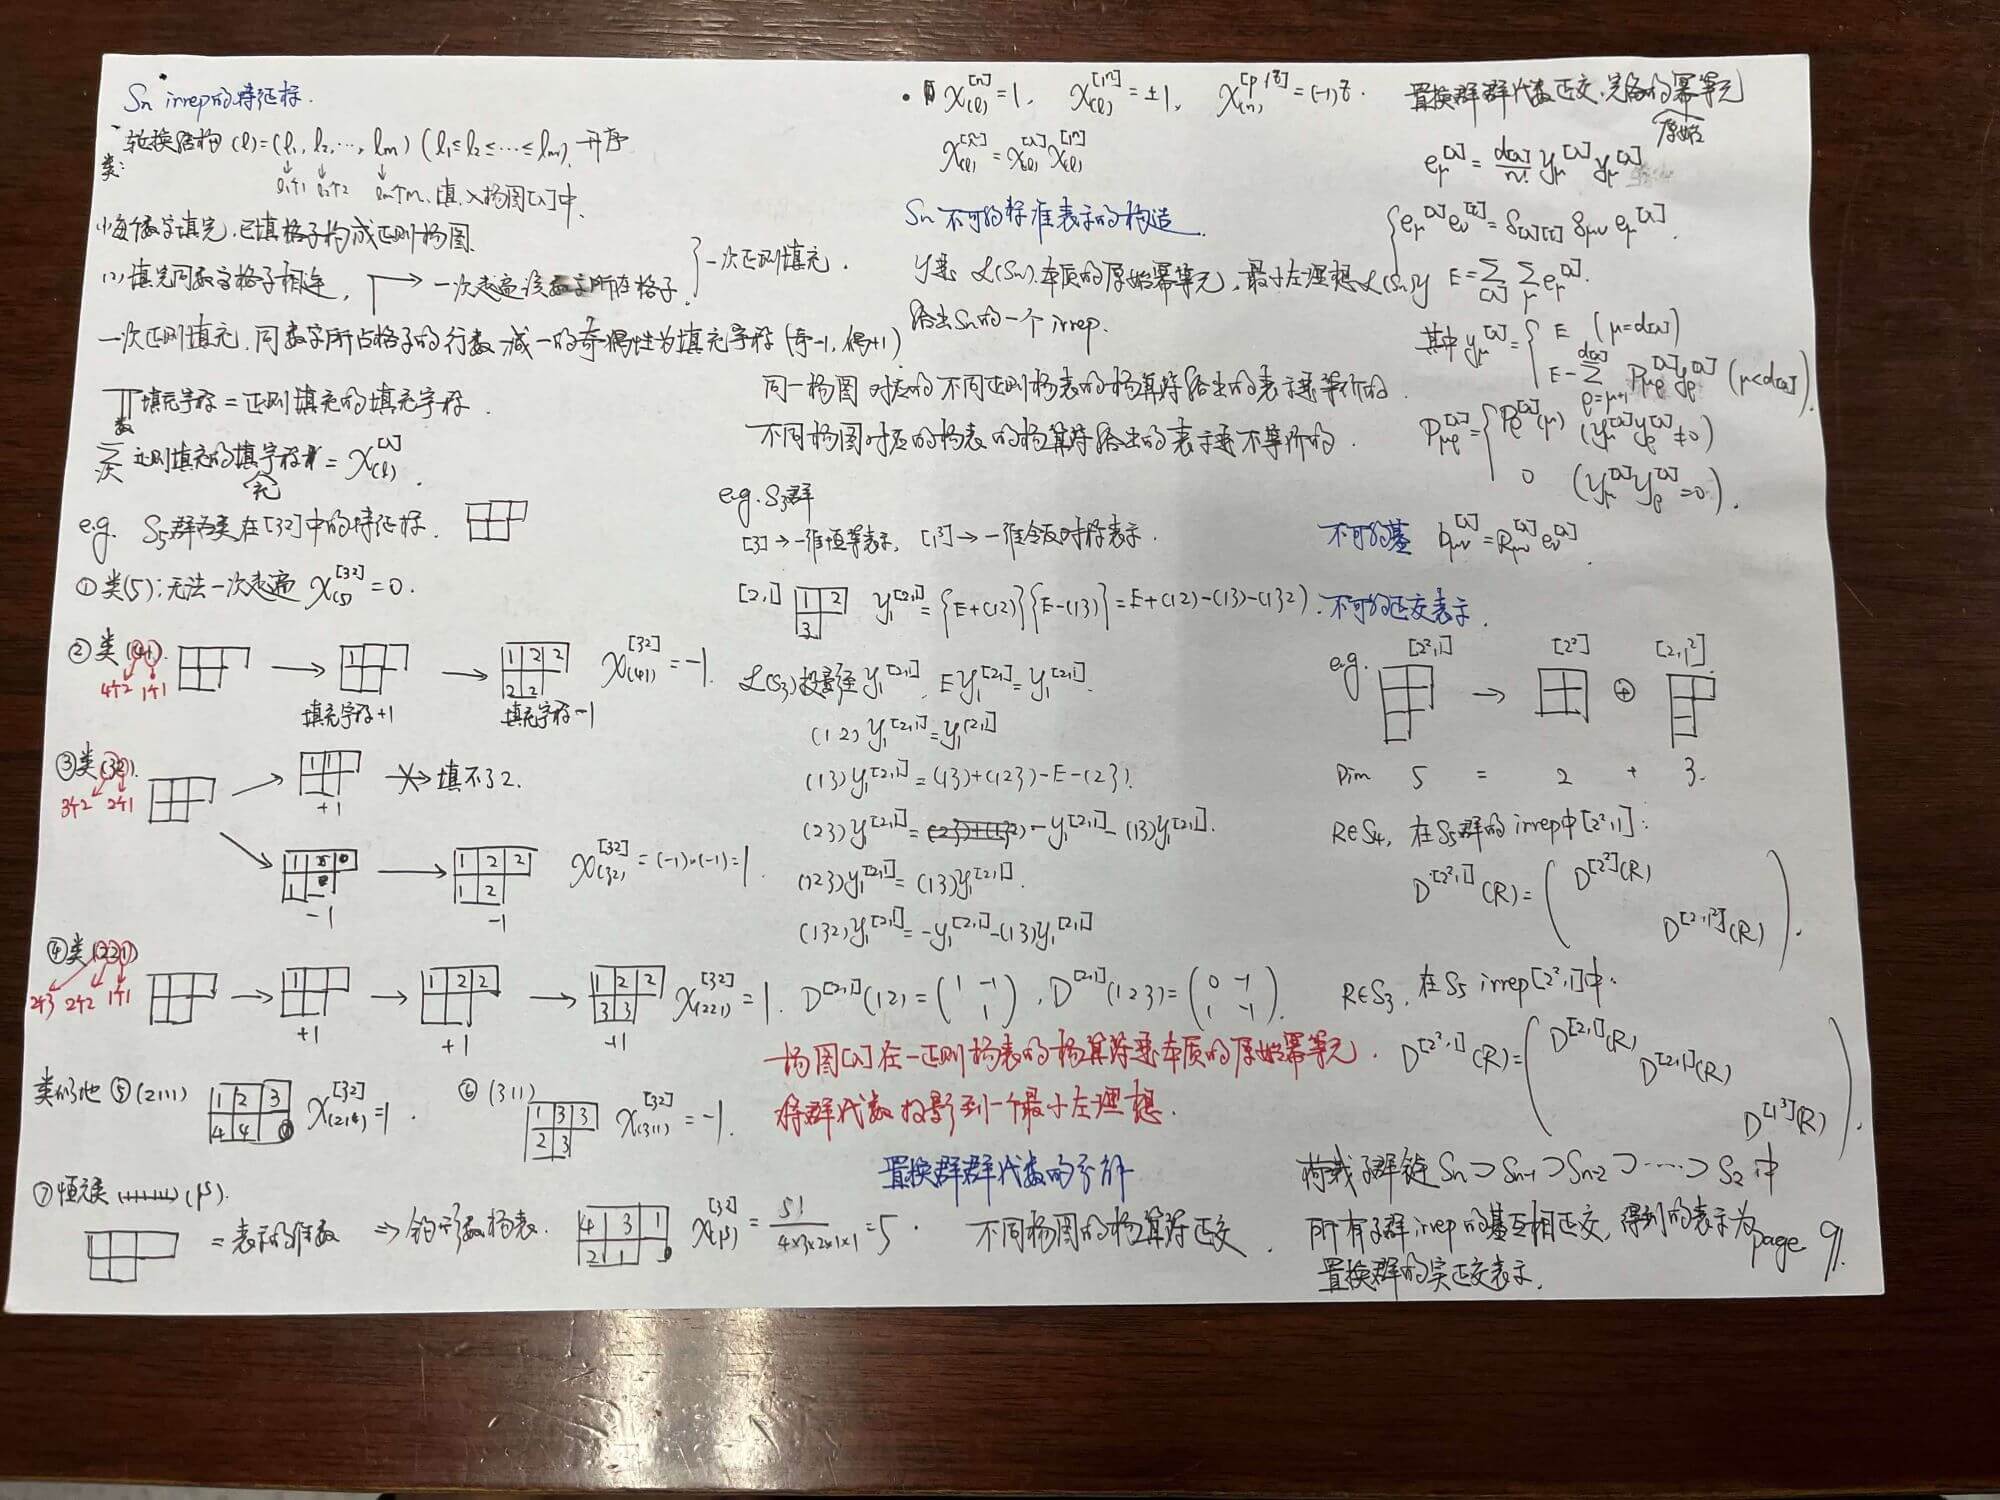 Sn irrep的特征标.
类: 轮换结构 (l)=(l₁, l₂, ⋯, lm) (l₁≤l₂≤⋯≤lm). 升序
l₁个1 l₂个2 lm个m. 填入杨图[λ]中.
(1)每个数字填完, 已填格子构成正则杨图.
(2) 填完同数字格子相连, → 一次走遍该数字所在格子. } 一次正则填充.
一次正则填充. 同数字所占格子的行数减一的奇偶性为填充宇称 (奇-1, 偶+1)
∏数 填充宇称 = 正则填充的填充宇称.
∑次 正则填充的填充宇称 = χ(l)^[λ].
e.g. S₅群各类在[32]中的特征标.
① 类(5): 无法一次走遍 χ(5)^[32] = 0.
② 类(41). → 1 → 1 2 2 / 2 2 χ(41)^[32] = -1.
4个2 1个1 填充宇称+1 填充宇称-1
③ 类(32). → 1 1 ↛ 填不了2.
3个2 2个1 +1
→ 1 / 1 → 1 2 2 / 1 2 χ(32)^[32] = (-1)·(-1) = 1.
-1 -1
④ 类(221)
2个3 2个2 1个1 → 1 → 1 2 2 → 1 2 2 / 3 3 χ(221)^[32] = 1.
+1 +1 +1
类似地 ⑤ (2111) 1 2 3 / 4 4 χ(2,1³)^[32] = 1. ⑥ (311) 1 3 3 / 2 3 χ(311)^[32] = -1.
⑦ 恒元类 (1⁵).
= 表示的维数 ⇒ 钩形数杨表. 4 3 1 / 2 1 χ(1⁵)^[32] = 5!/(4×3×2×1×1) = 5.
• χ(l)^[n] = 1, χ(l)^[1ⁿ] = ±1, χ(n)^[p 1^q] = (-1)^q.
χ(l)^[λ̃] = χ(l)^[λ] χ(l)^[1ⁿ]
Sn 不可约标准表示的构造
y是 𝓛(Sn) 本质的原始幂等元, 最小左理想𝓛(Sn)y
给出Sn的一个 irrep.
同一杨图对应的不同正则杨表的杨算符给出的表示是等价的.
不同杨图对应的杨表的杨算符给出的表示是不等价的.
e.g. S₃群
[3] → 一维恒等表示, [1³] → 一维全反对称表示.
[2,1] 1 2 / 3 y₁^[2,1] = {E+(12)}{E-(13)} = E+(12)-(13)-(132).
𝓛(S₃)投影至 y₁^[2,1]. E y₁^[2,1] = y₁^[2,1].
(12) y₁^[2,1] = y₁^[2,1]
(13) y₁^[2,1] = (13)+(123)-E-(23).
(23) y₁^[2,1] = -y₁^[2,1]-(13)y₁^[2,1].
(123) y₁^[2,1] = (13)y₁^[2,1].
(132) y₁^[2,1] = -y₁^[2,1]-(13)y₁^[2,1]
D^[2,1](12) = (1 -1 / 1), D^[2,1](123) = (0 -1 / 1 -1).
杨图[λ]在一正则杨表的杨算符是本质的原始幂等元.
将群代数投影到一个最小左理想.
置换群群代数的分解
不同杨图的杨算符正交.
置换群群代数正交. 完备的原始幂等元
eμ^[λ] = d[λ]/n! Yμ^[λ] yμ^[λ]
{ eμ^[λ] eν^[τ] = δ[λ][τ] δμν eμ^[λ].
E = ∑[λ] ∑μ eμ^[λ].
其中 yμ^[λ] = { E (μ=d[λ])
E - ∑ρ=μ+1^d[λ] Pμρ^[λ] yρ^[λ] (μ<d[λ]).
Pμρ^[λ] = { Pρ^[λ](μ) (yμ^[λ] yρ^[λ] ≠ 0)
0 (yμ^[λ] yρ^[λ] = 0).
不可约基 bμν^[λ] = Rμν^[λ] eν^[λ]
不可约正交表示.
e.g. [2²,1] → [2²] ⊕ [2,1²]
Dim 5 = 2 + 3.
R∈S₄, 在S₅群的irrep中[2²,1]:
D^[2²,1](R) = ( D^[2²](R) D^[2,1²](R) ).
R∈S₃, 在S₅ irrep[2²,1]中.
D^[2²,1](R) = ( D^[2,1](R) D^[2,1](R) D^[1³](R) ).
构成子群链 Sn⊃Sn-1⊃Sn-2⊃⋯⊃S₂中
所有子群irrep的基互相正交, 得到的表示为
置换群的实正交表示.
page 91.